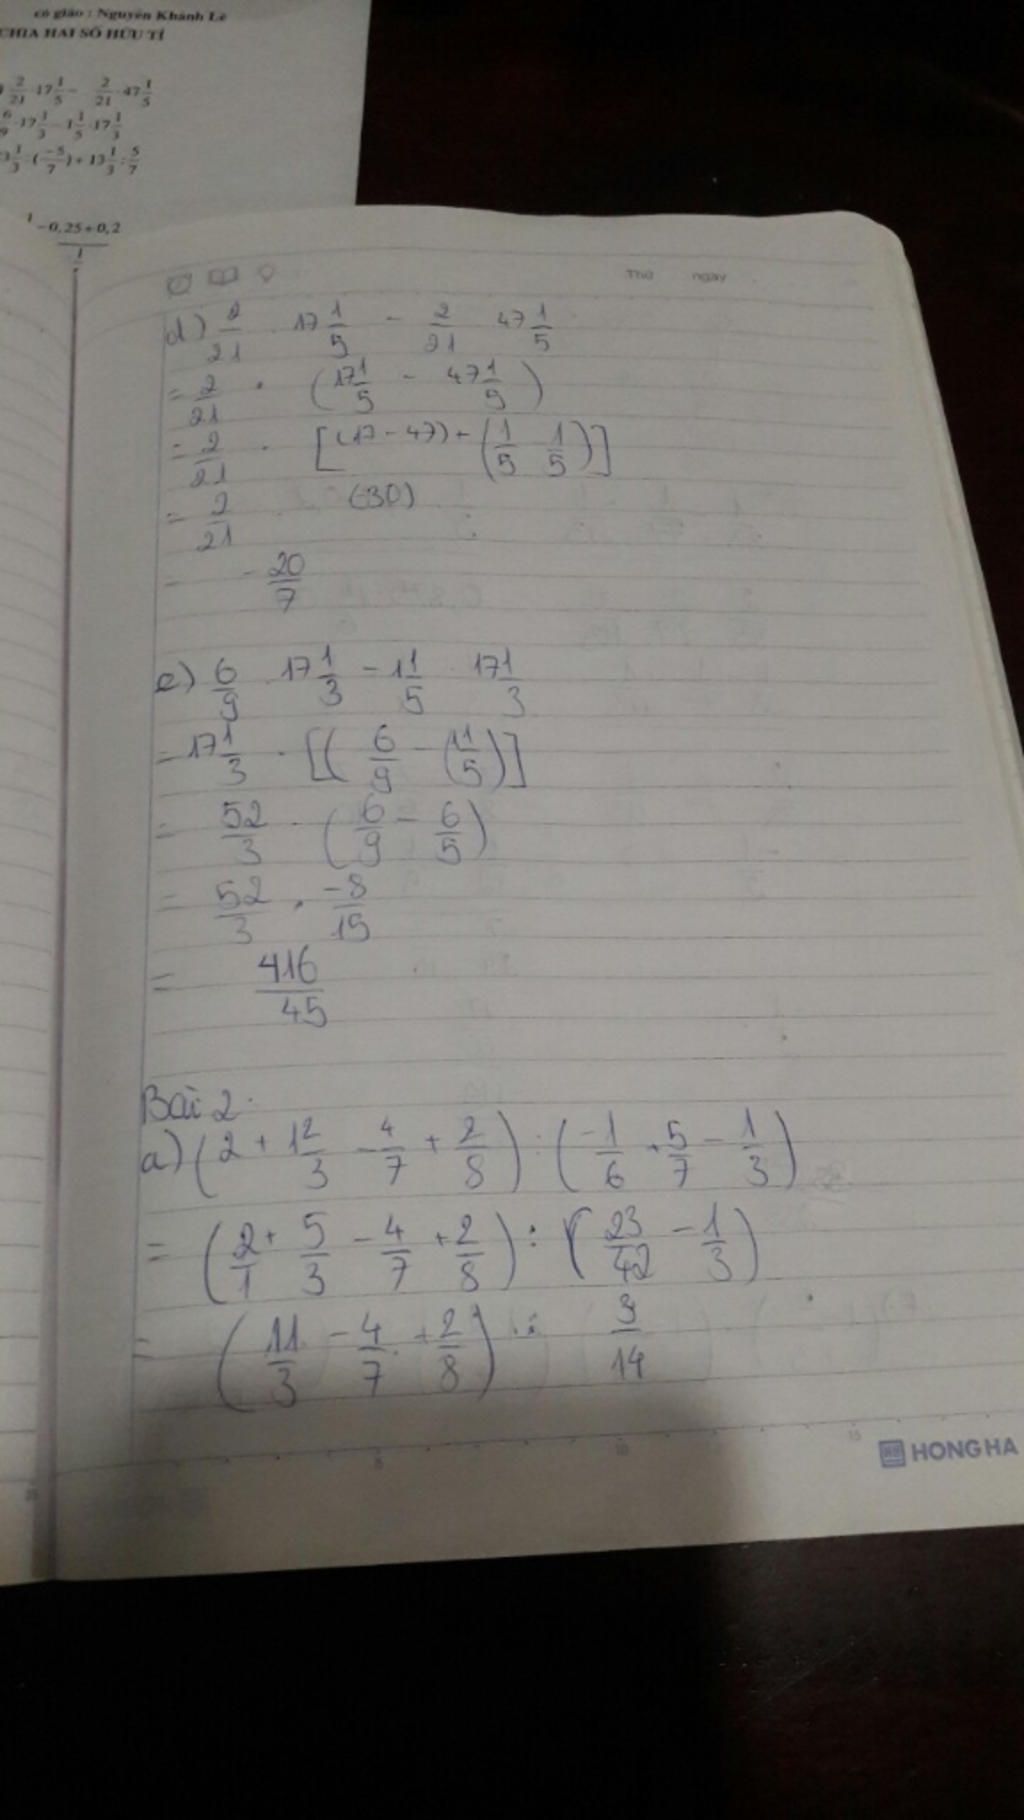 cô giáo : Nguyễn Khánh Lê
CHIA HAI SỐ HỮU TỈ
2/21 · 17 1/5 - 2/21 · 47 1/5
6/9 · 17 1/3 - 1 1/5 · 17 1/3
3 1/3 : (-5/7) + 13 1/3 : 5/7
- 0,25 + 0,2
Thứ ngày
d) 2/21 . 17 1/5 - 2/21 47 1/5
= 2/21 . (17 1/5 - 47 1/5)
= 2/21 . [(17 - 47) + (1/5 1/5)]
= 2/21 (-30)
= - 20/7
e) 6/9 . 17 1/3 - 1 1/5 . 17 1/3
= 17 1/3 . [(6/9 - (1 1/5)]
= 52/3 . (6/9 - 6/5)
= 52/3 . -8/15
= 416/45
Bài 2.
a) (2 + 1 2/3 - 4/7 + 2/8) : (-1/6 + 5/7 - 1/3)
= (2/1 + 5/3 - 4/7 + 2/8) : (23/42 - 1/3)
= (11/3 - 4/7 + 2/8) : 3/14
5 10 15
HONG HA